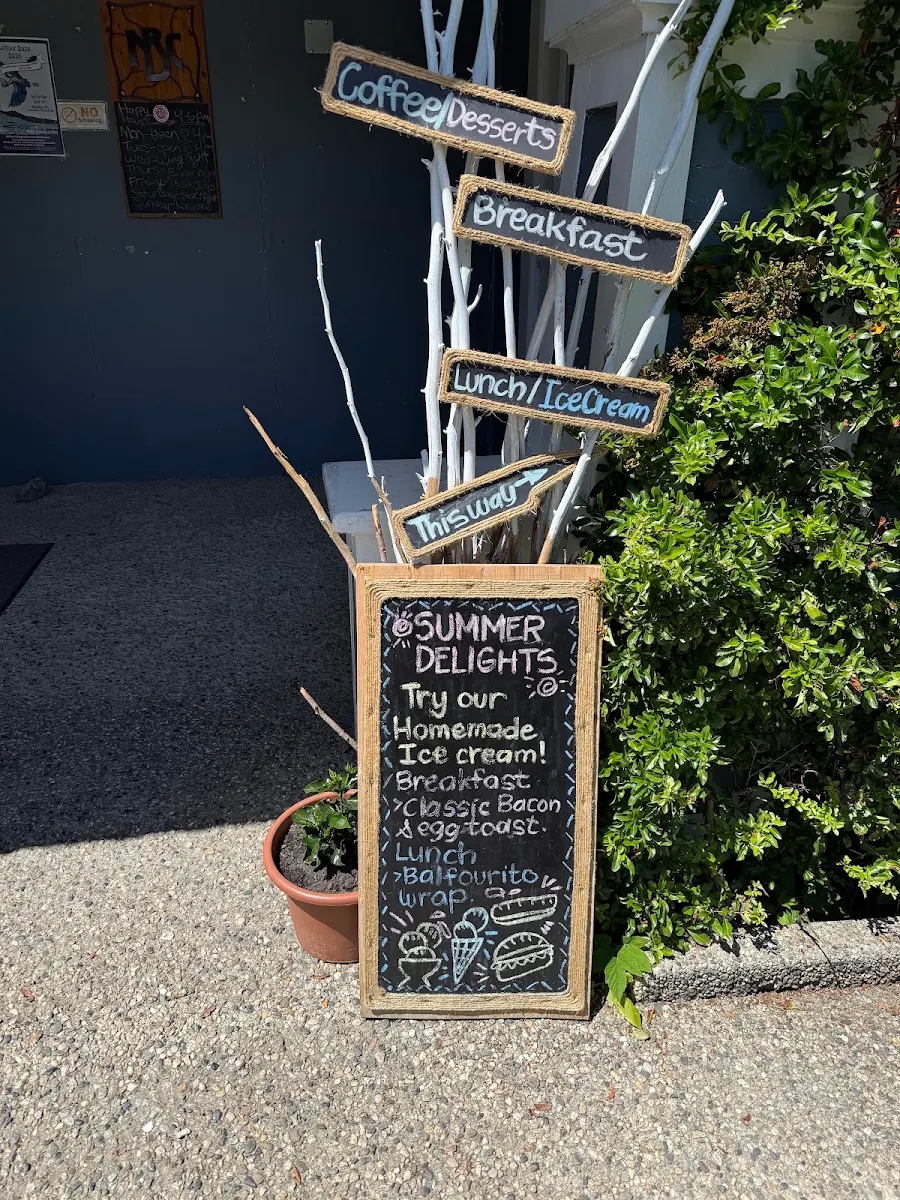 NBC
NO
Smoking
Happy
Hour
4-6pm
Mon-open@4
Tues-open
Wed-Wing night
Coffee/Desserts
Breakfast
Lunch/IceCream
This way
SUMMER
DELIGHTS
Try our
Homemade
Ice cream!
Breakfast
>Classic Bacon
& egg toast.
Lunch
>Balfourito
wrap